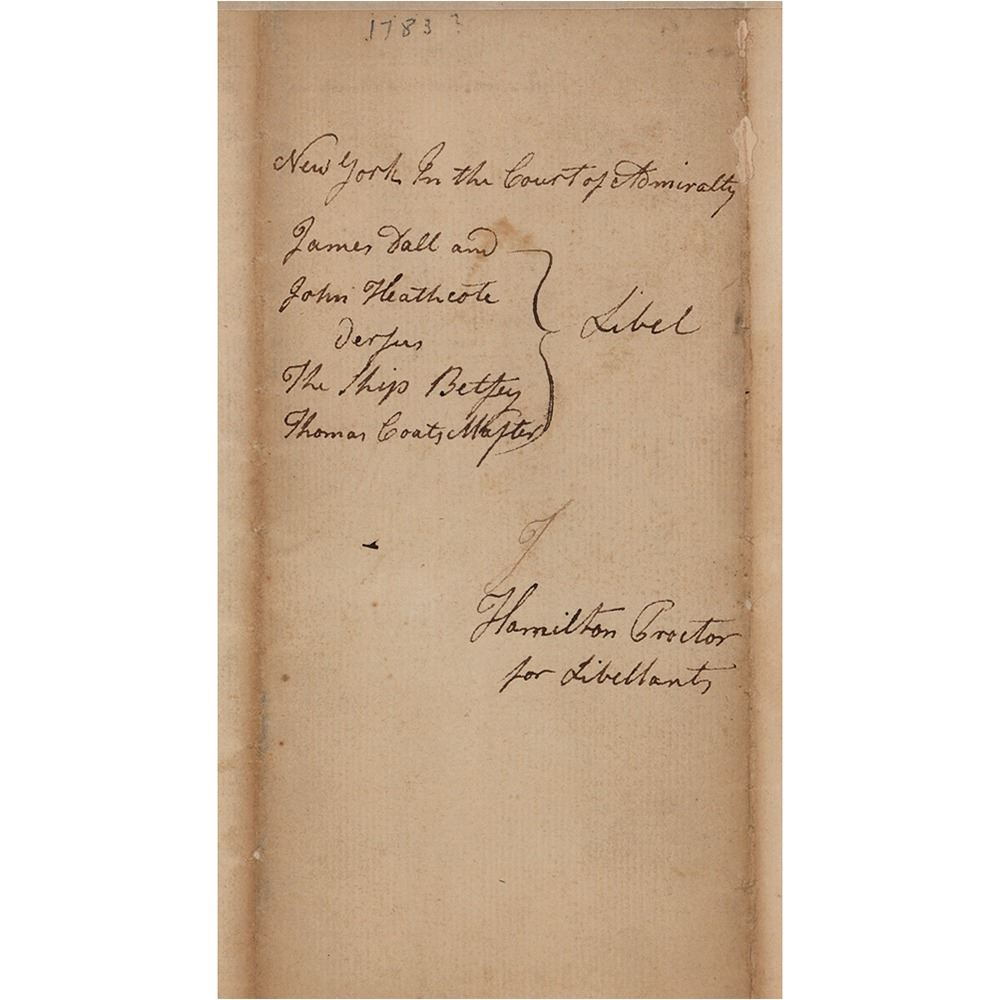 1783 ?
New York In the Court of Admiralty
James Dall and
John Heathcote
versus
Libel
The Ship Betsey
Thomas Coats Master
J
Hamilton Proctor
for Libellants